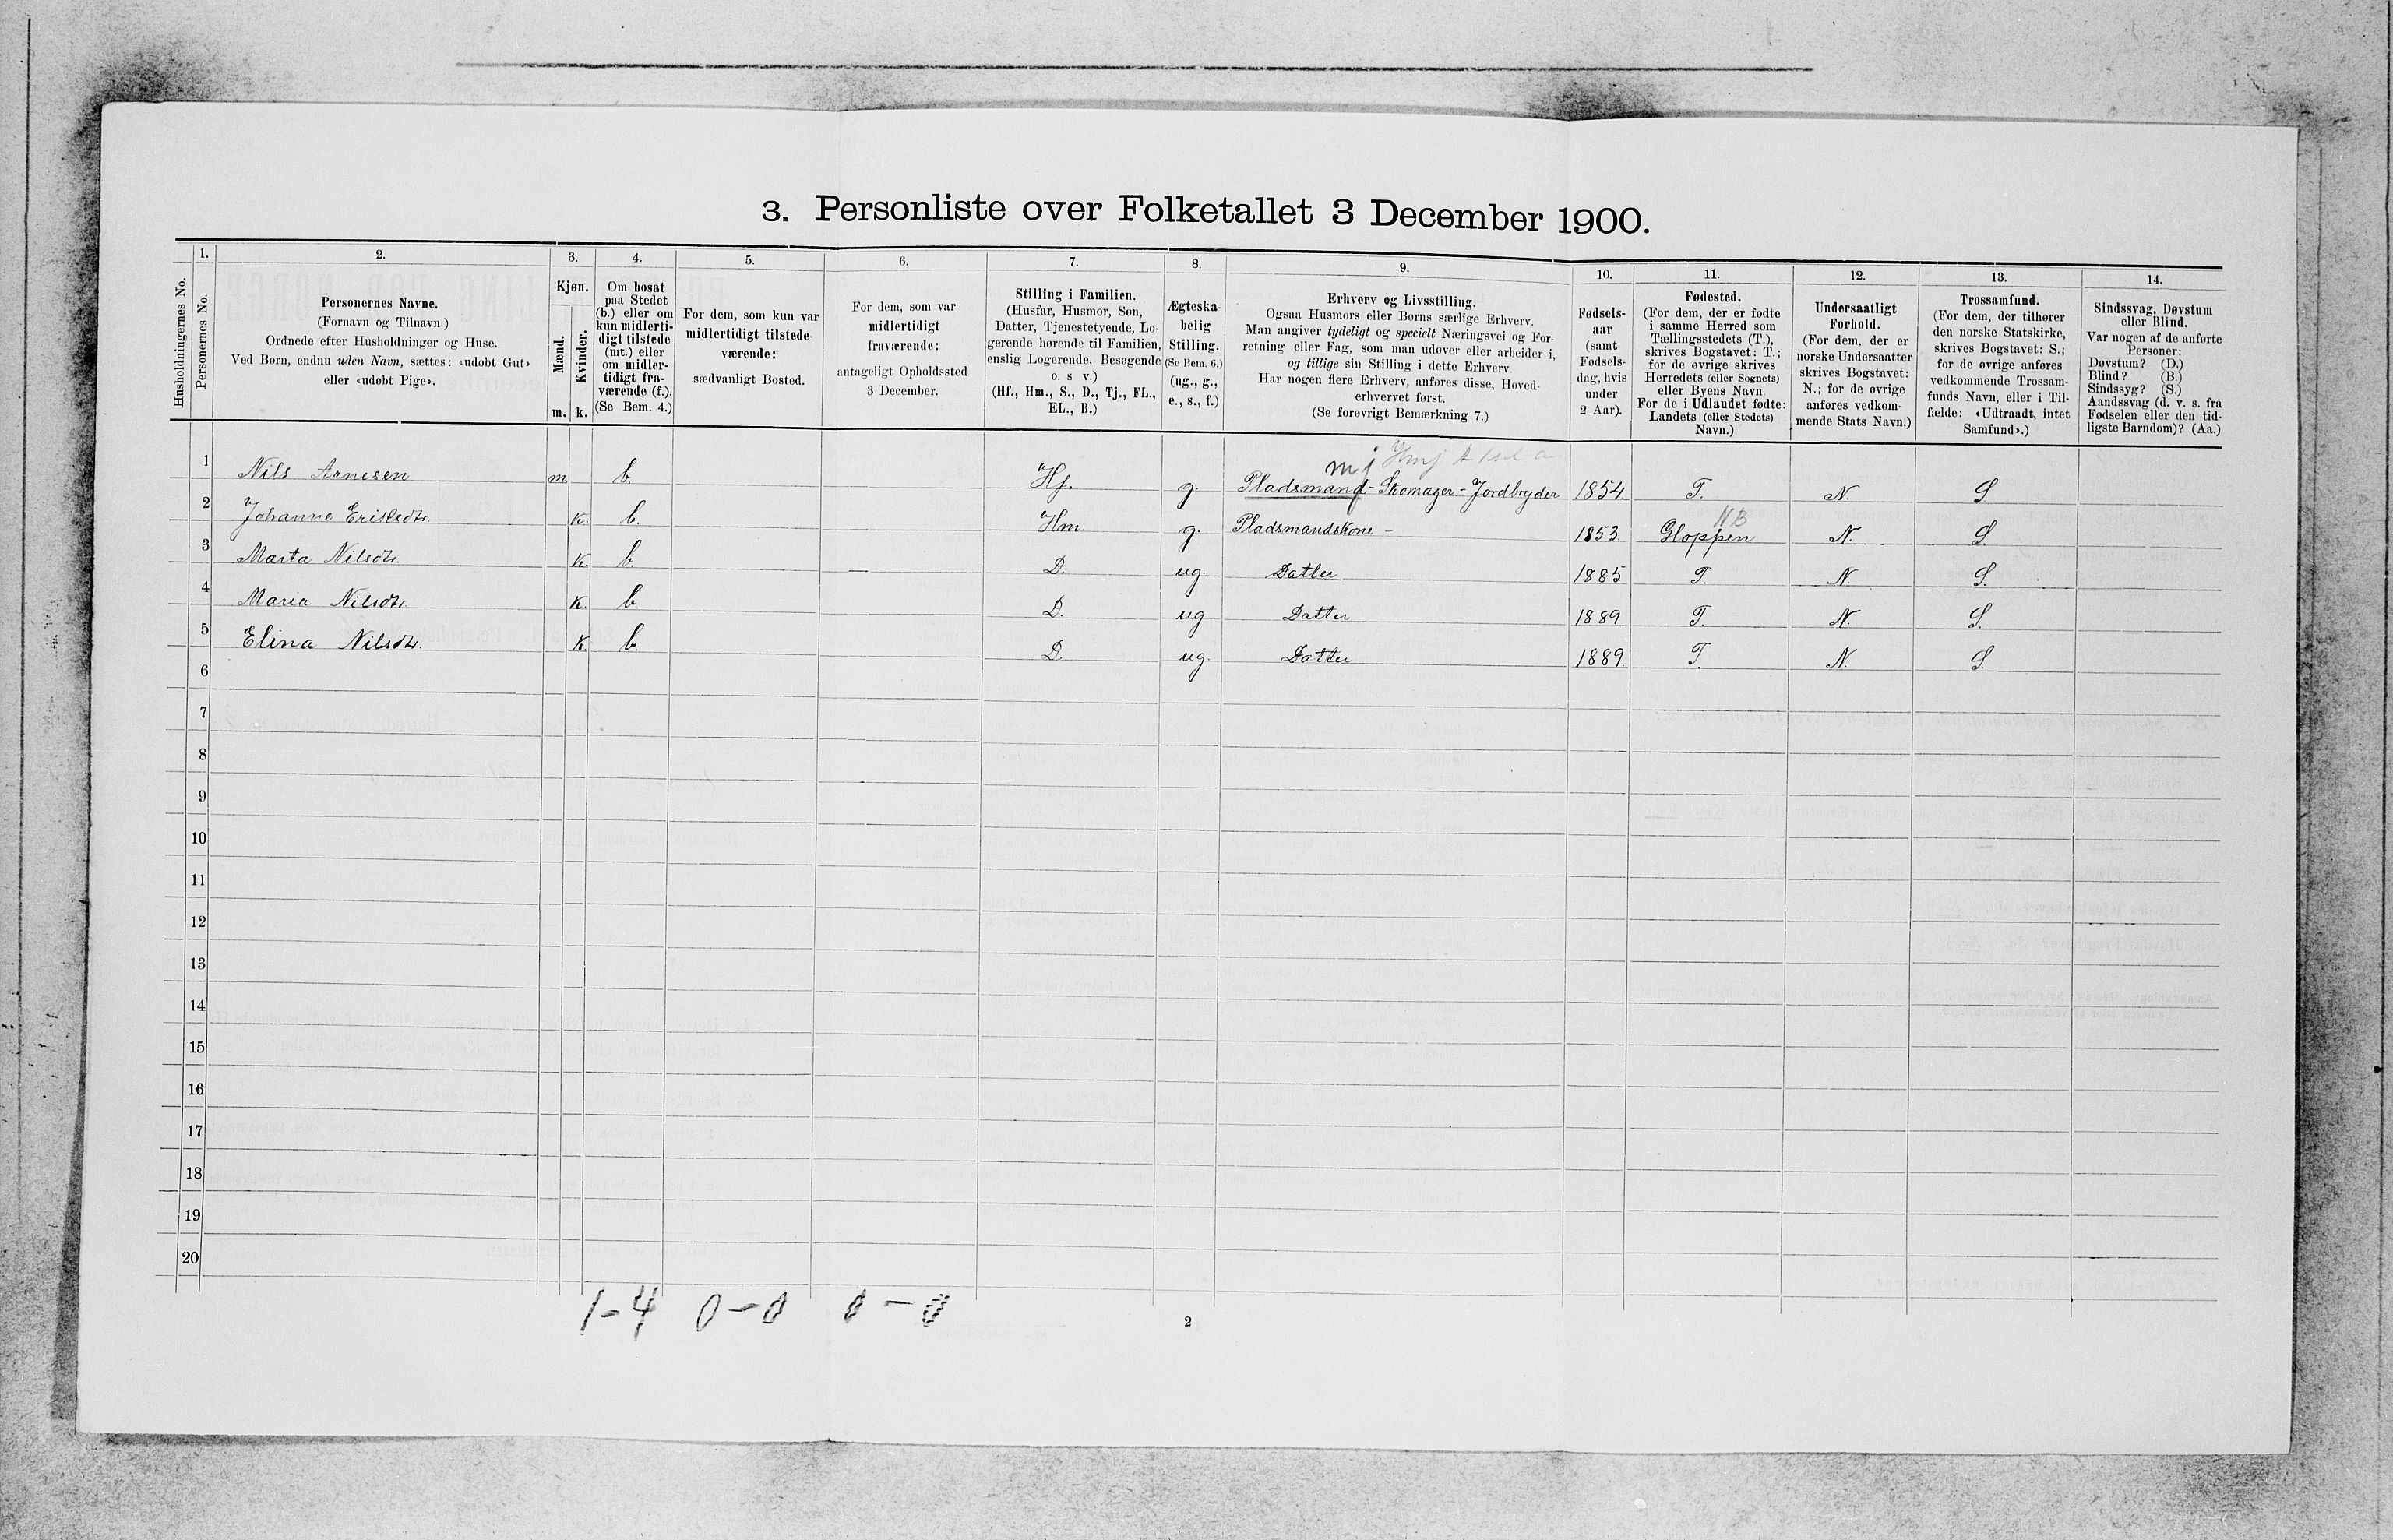 3. Personliste over Folketallet 3 December 1900.
Husholdningernes No.
1.
Personernes No.
2.
Personernes Navne.
(Fornavn og Tilnavn )
Ordnede efter Husholdninger og Huse.
Ved Børn, endnu uden Navn, sættes: «udøbt Gut»
eller «udøbt Pige».
3.
Kjøn.
Mænd.
Kvinder.
m. k.
4.
Om bosat
paa Stedet
(b.) eller om
kun midlerti-
digt tilstede
(mt.) eller
om midler-
tidigt fra-
værende (f.).
(Se Bem. 4.)
5.
For dem, som kun var
midlertidigt tilstede-
værende:
sædvanligt Bosted.
6.
For dem, som var
midlertidigt
fraværende:
antageligt Opholdssted
3 December.
7.
Stilling i Familien.
(Husfar, Husmor, Søn,
Datter, Tjenestetyende, Lo-
gerende hørende til Familien,
enslig Logerende, Besøgende
o. s v.)
(Hf., Hm., S., D., Tj., FL.,
EL., B.)
8.
Ægteska-
belig
Stilling.
(Se Bem. 6.)
(ug., g.,
e., s., f.)
9.
Erhverv og Livsstilling.
Ogsaa Husmors eller Børns særlige Erhverv.
Man angiver tydeligt og specielt Næringsvei og For-
retning eller Fag, som man udøver eller arbeider i,
og tillige sin Stilling i dette Erhverv.
Har nogen flere Erhverv, anføres disse, Hoved-
erhvervet først.
(Se forøvrigt Bemærkning 7.)
10.
Fødsels-
aar
(samt
Fødsels-
dag, hvis
under
2 Aar).
11.
Fødested.
(For dem, der er fødte
i samme Herred som
Tællingsstedets (T.),
skrives Bogstavet: T.;
for de øvrige skrives
Herredets (eller Sognets)
eller Byens Navn.
For de i Udlandet fødte:
Landets (eller Stedets)
Navn.)
12.
Undersaatligt
Forhold.
(For dem, der er
norske Undersaatter
skrives Bogstavet:
N.; for de øvrige
anføres vedkom-
mende Stats Navn.)
13.
Trossamfund.
(For dem, der tilhører
den norske Statskirke,
skrives Bogstavet: S.;
for de øvrige anføres
vedkommende Trossam-
funds Navn, eller i Til-
fælde: «Udtraadt, intet
Samfund».)
14.
Sindssvag, Døvstum
eller Blind.
Var nogen af de anførte
Personer:
Døvstum? (D.)
Blind? (B.)
Sindssyg? (S.)
Aandssvag (d. v. s. fra
Fødselen eller den tid-
ligste Barndom)? (Aa.)
mj
1 Nils Arnesen m b. Hf. g. Pladsmand - Skomager - Jordbryder 1854 T. N. S.
NB
2 Johanne Eriksdtr. k. b. Hm. g. Pladsmandskone - 1853. Gloppen N. S.
3 Marta Nilsdtr. k. b. — D. ug. Datter 1885 T. N. S.
4 Maria Nilsdtr. k. b D. ug Datter 1889 T. N. S.
5 Elina Nilsdtr. k. b. D. ug. Datter 1889. T. N. S.
6
7
8
9
10
11
12
13
14
15
16
17
18
19
20
1-4 0-0 0-0
2